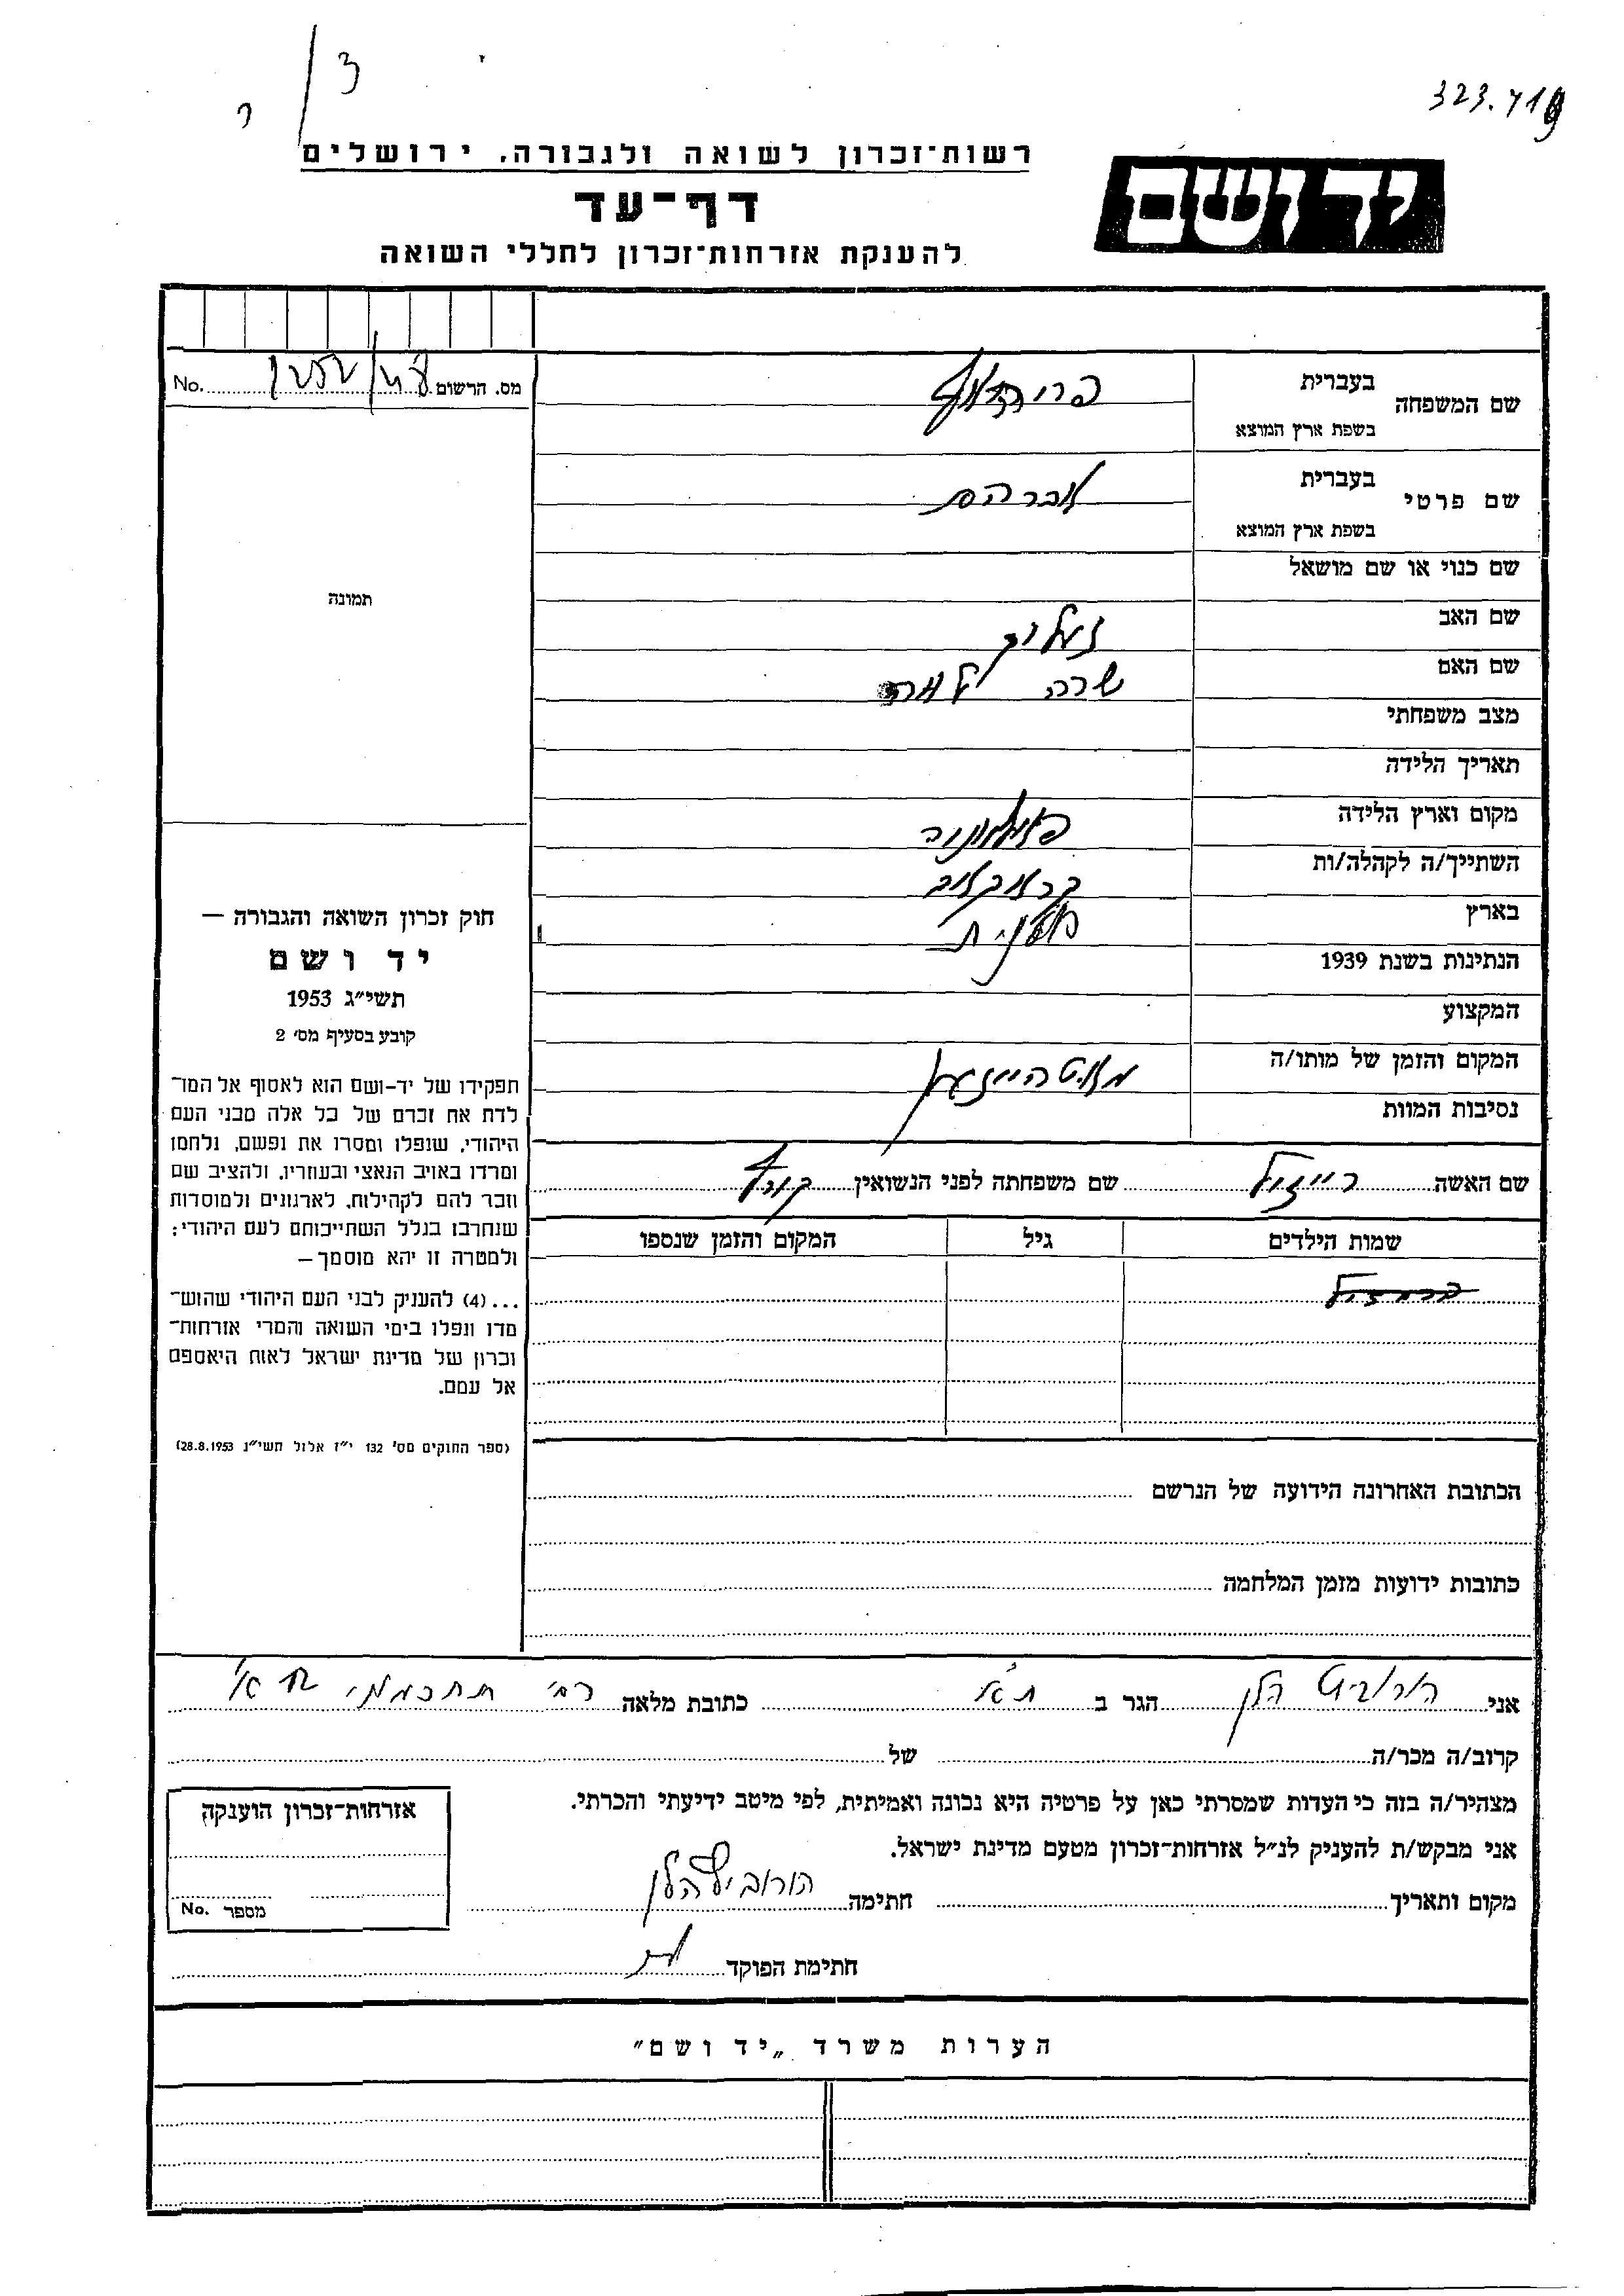 323.719
רשות־זכרון לשואה ולגבורה, ירושלים
יד ושם
דף־עד
להענקת אזרחות־זכרון לחללי השואה
מס. הרשום No.
שם המשפחה
בעברית
בשפת ארץ המוצא
שם פרטי
בעברית אברהם
בשפת ארץ המוצא
שם כנוי או שם מושאל
שם האב זעליג
שם האם שרה לאה
מצב משפחתי
תאריך הלידה
מקום וארץ הלידה
השתייך/ה לקהלה/ות קראקאוב
בארץ
הנתינות בשנת 1939
המקצוע
המקום והזמן של מותו/ה מאטהויזען
נסיבות המוות
שם האשה רייזל שם משפחתה לפני הנשואין
שמות הילדים גיל המקום והזמן שנספו
תמונה
חוק זכרון השואה והגבורה —
יד ושם
תשי״ג 1953
קובע בסעיף מס׳ 2
תפקידו של יד-ושם הוא לאסוף אל המו־
לדת את זכרם של כל אלה מבני העם
היהודי, שנפלו ומסרו את נפשם, נלחמו
ומרדו באויב הנאצי ובעוזריו, ולהציב שם
וזכר להם לקהילות, לארגונים ולמוסדות
שנחרבו בגלל השתייכותם לעם היהודי;
ולמטרה זו יהא מוסמך—
...(4) להעניק לבני העם היהודי שהוש־
מדו ונפלו בימי השואה והמרי אזרחות־
זכרון של מדינת ישראל לאות היאספם
אל עמם.
(ספר החוקים מס׳ 132 י״ז אלול תשי״ג 28.8.1953)
הכתובת האחרונה הידועה של הנרשם
כתובות ידועות מזמן המלחמה
אני הורוביץ הלן הגר ב ת״א כתובת מלאה
קרוב/ה מכר/ה של
מצהיר/ה בזה כי העדות שמסרתי כאן על פרטיה היא נכונה ואמיתית, לפי מיטב ידיעתי והכרתי.
אני מבקש/ת להעניק לנ״ל אזרחות־זכרון מטעם מדינת ישראל.
מקום ותאריך חתימה הורוביץ הלן
חתימת הפוקד
אזרחות־זכרון הוענקה
מספר No.
הערות משרד „יד ושם״